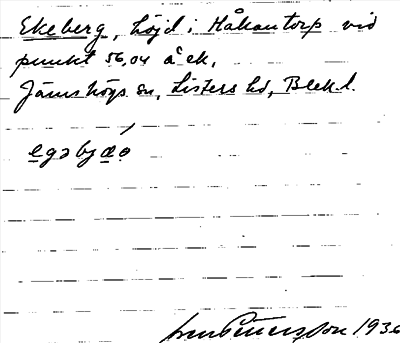 Ekeberg, höjd i Håkantorp vid
punkt 56,04 å ek.
Jämshögs sn, Listers hd, Blek. l.
Pettersson 1936